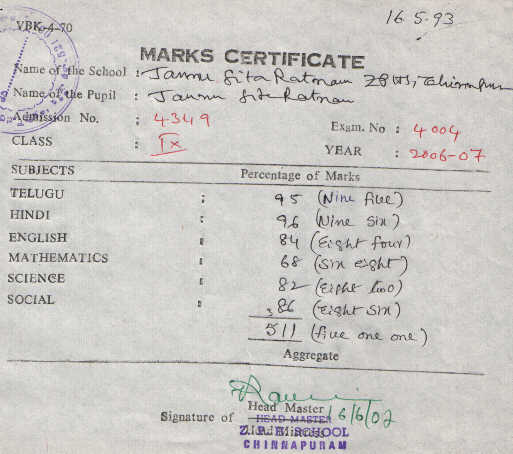 16.5.93
VBK-4-70
MARKS CERTIFICATE
Name of the School : Jammu Sita Ratnam ZPHS,
Name of the Pupil : Jammu Sita Ratnam
Admission No. : 4349
Exam. No : 4004
CLASS : IX
YEAR : 2006-07
SUBJECTS Percentage of Marks
TELUGU : 95 (Nine five)
HINDI : 96 (Nine Six)
ENGLISH : 84 (Eight four)
MATHEMATICS : 68 (Six eight)
SCIENCE : 82 (Eight two)
SOCIAL : 86 (Eight Six)
511 (five one one)
Aggregate
Signature of Head Master
HEAD MASTER
Z. P. H. SCHOOL
CHINNAPURAM